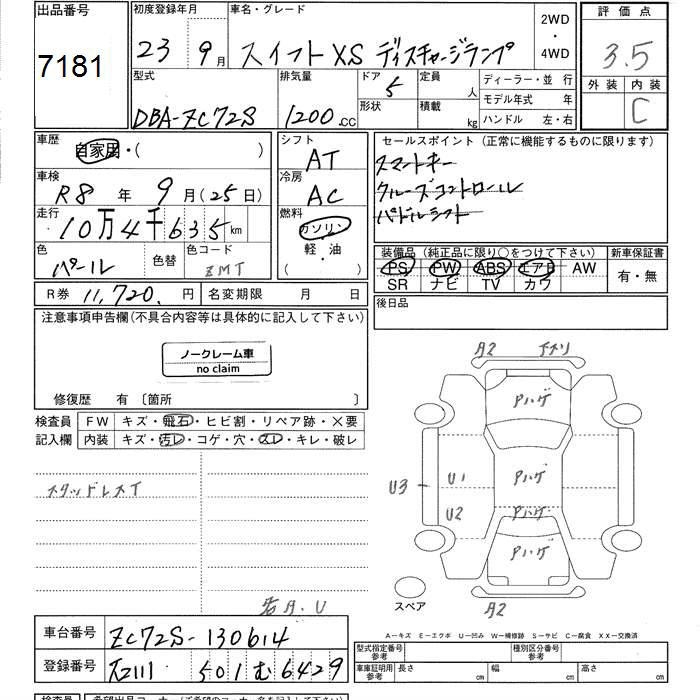 出品番号
7181
初度登録年月
23年 9月
車名・グレード
スイフト XS ディスチャージランプ
2WD
・
4WD
評価点
3.5
外装 内装
C
型式
DBA-ZC72S
排気量
1200.cc
ドア
5
形状
定員
人
積載
kg
ディーラー・並 行
モデル年式 年
ハンドル 左・右
車歴
自家用・( )
車検
R8 年 9月(25日)
走行
10万4千635km
色
パール
色替
色コード
ZMT
R券 11,720. 円
名変期限 月 日
シフト
AT
冷房
AC
燃料
ガソリン
軽・油
( )
セールスポイント(正常に機能するものに限ります)
スマートキー
クルーズコントロール
パドルシフト
装備品(純正品に限り○をつけて下さい)
新車保証書
PS PW ABS エアB AW
SR ナビ TV カワ
有・無
後日品
注意事項申告欄(不具合内容等は具体的に記入して下さい)
ノークレーム車
no claim
修復歴 有〔箇所 〕
検査員
記入欄
FW キズ・飛石・ヒビ割・リペア跡・X要
内装 キズ・汚レ・コゲ・穴・スレ・キレ・破レ
スタッドレスT
A2
Pハゲ
U3
U1
Pハゲ
U2
Pハゲ
Pハゲ
スペア
A2
A－キズ E－エクボ U－凹み W－補修跡 S－サビ C－腐食 XX－交換済
車台番号
ZC72S-130614
登録番号
501 む 6429
型式指定番号
参考
種別区分番号
参考
車庫証明用
参考
長さ cm
幅 cm
高さ cm
検査員